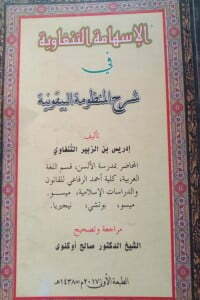 الإسهامة التنغاوية
في
شرح المنظومة البيقونية
تأليف
إدريس بن الزبير التنغاوي
المحاضر بمدرسة الألسن، قسم اللغة
العربية، كلية أحمد الرفاعي للقانون
والدراسات الإسلامية، ميسو
ميسو، بوتشي، نيجيريا.
مراجعة وتصحيح
الشيخ الدكتور صالح أوكنوي
الطبعة الأولى ٢٠١٧م=١٤٣٨هـ